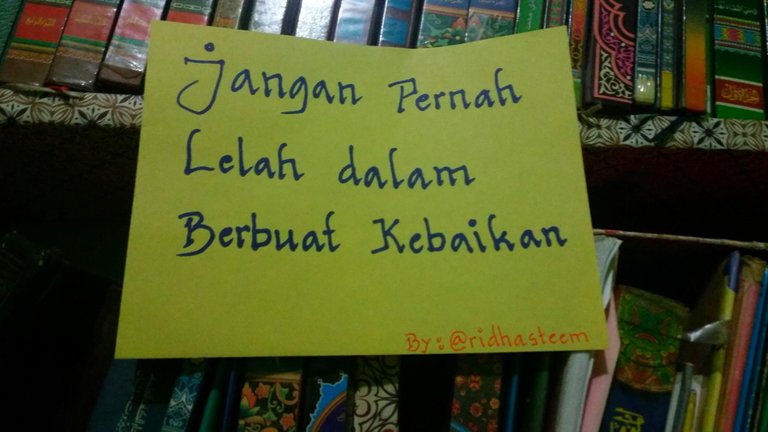 Jangan Pernah
Lelah dalam
Berbuat Kebaikan
By: @ridhasteem